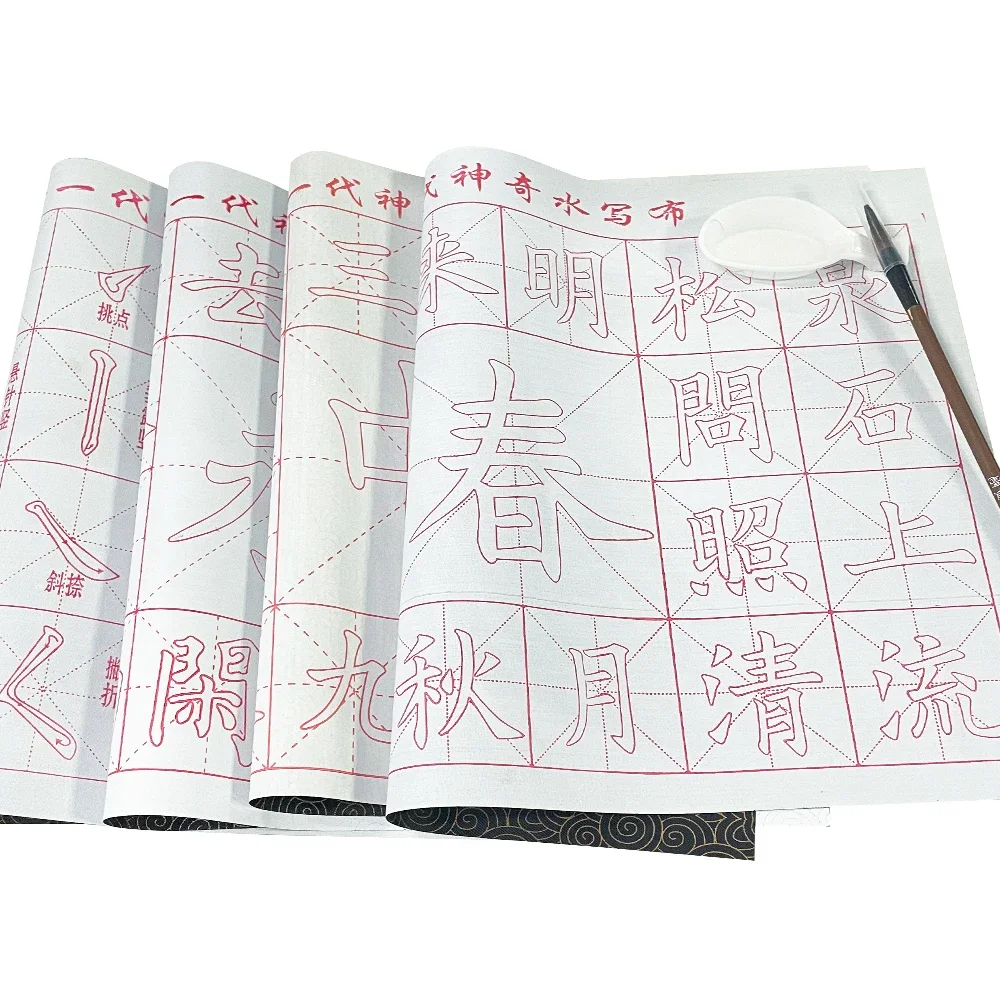 一代
挑点
悬针竖
斜捺
折
一代
去
一代神
三
九
代神奇水写布
來明松泉
春間石
照上
秋月清流